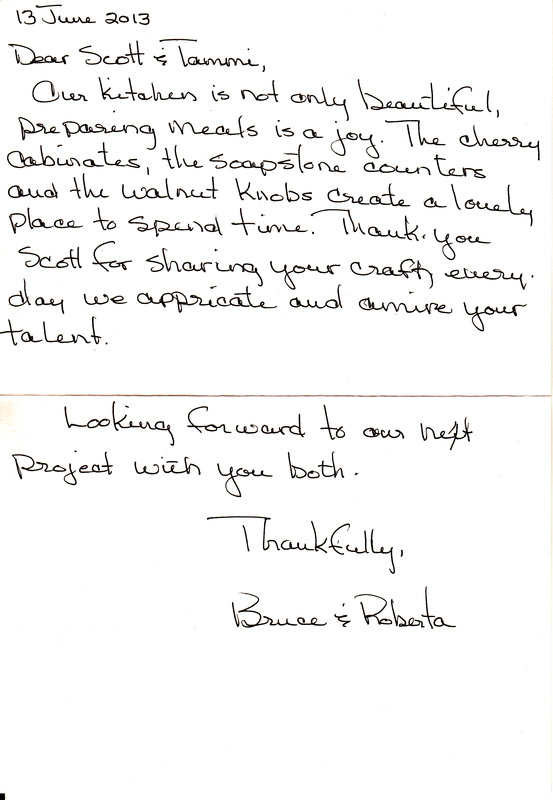 13 June 2013
Dear Scott & Tammi,
Our kitchen is not only beautiful,
preparing meals is a joy. The cherry
cabinates, the soapstone counters
and the walnut knobs create a lovely
place to spend time. Thank-you
Scott for sharing your craft, every-
day we appricate and amire your
talent.
Looking forward to our next
project with you both.
Thankfully,
Bruce & Roberta